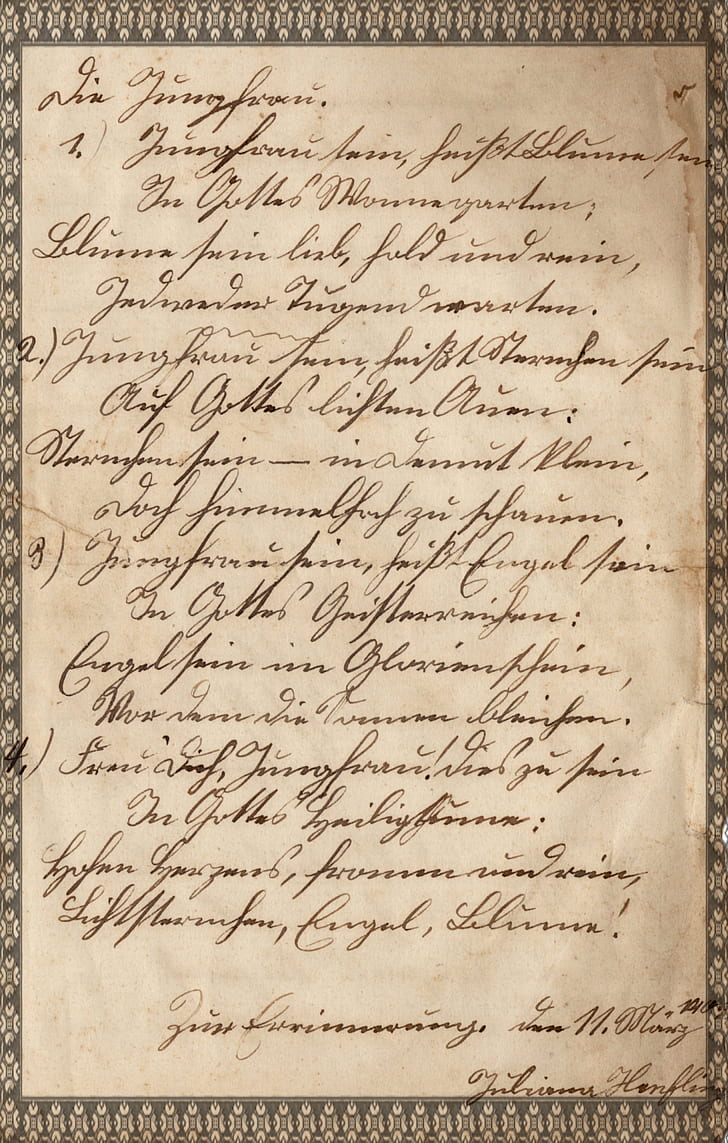 Die Jungfrau.
1.) Jungfrau sein, heißt Blume sein
In Gottes Wonnegarten;
Blume sein lieb, hold und rein,
Jedweder Tugend warten.
2.) Jungfrau sein, heißt Sternchen sein
Auf Gottes lichten Auen:
Sternchen sein — in Demut klein,
Doch himmelhoch zu schauen.
3) Jungfrau sein, heißt Engel sein
In Gottes Geisterreichen:
Engel sein im Glorienschein,
Vor dem die Sonnen bleichen.
4.) Freu Dich, Jungfrau! dies zu sein
In Gottes Heiligthume:
Hohen Herzens, fromm und rein,
Lichtsternchen, Engel, Blume!
Zur Errinnerung. den 11. März
Juliana